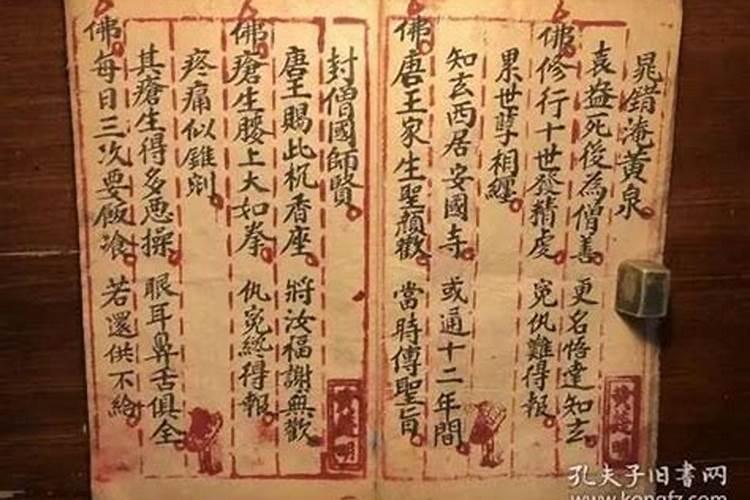 晁錯淹黃泉
袁盎死後為僧善 更名悟達知玄
佛修行十世發精虔 寃仇難得報
累世孽相纏
知玄西居安國寺 或通十二年間
佛唐王家生聖顏歡 當時傳聖旨
封僧國師賢
唐王賜此杌香座 將汝福謝無歡
佛瘡生腰上大如拳 仇寃終得報
疼痛似錐剜
其瘡生得多惡操 眼耳鼻舌俱全
佛每日三次要飯飡 若還供不給
孔夫子旧書网
www.kongfz.com